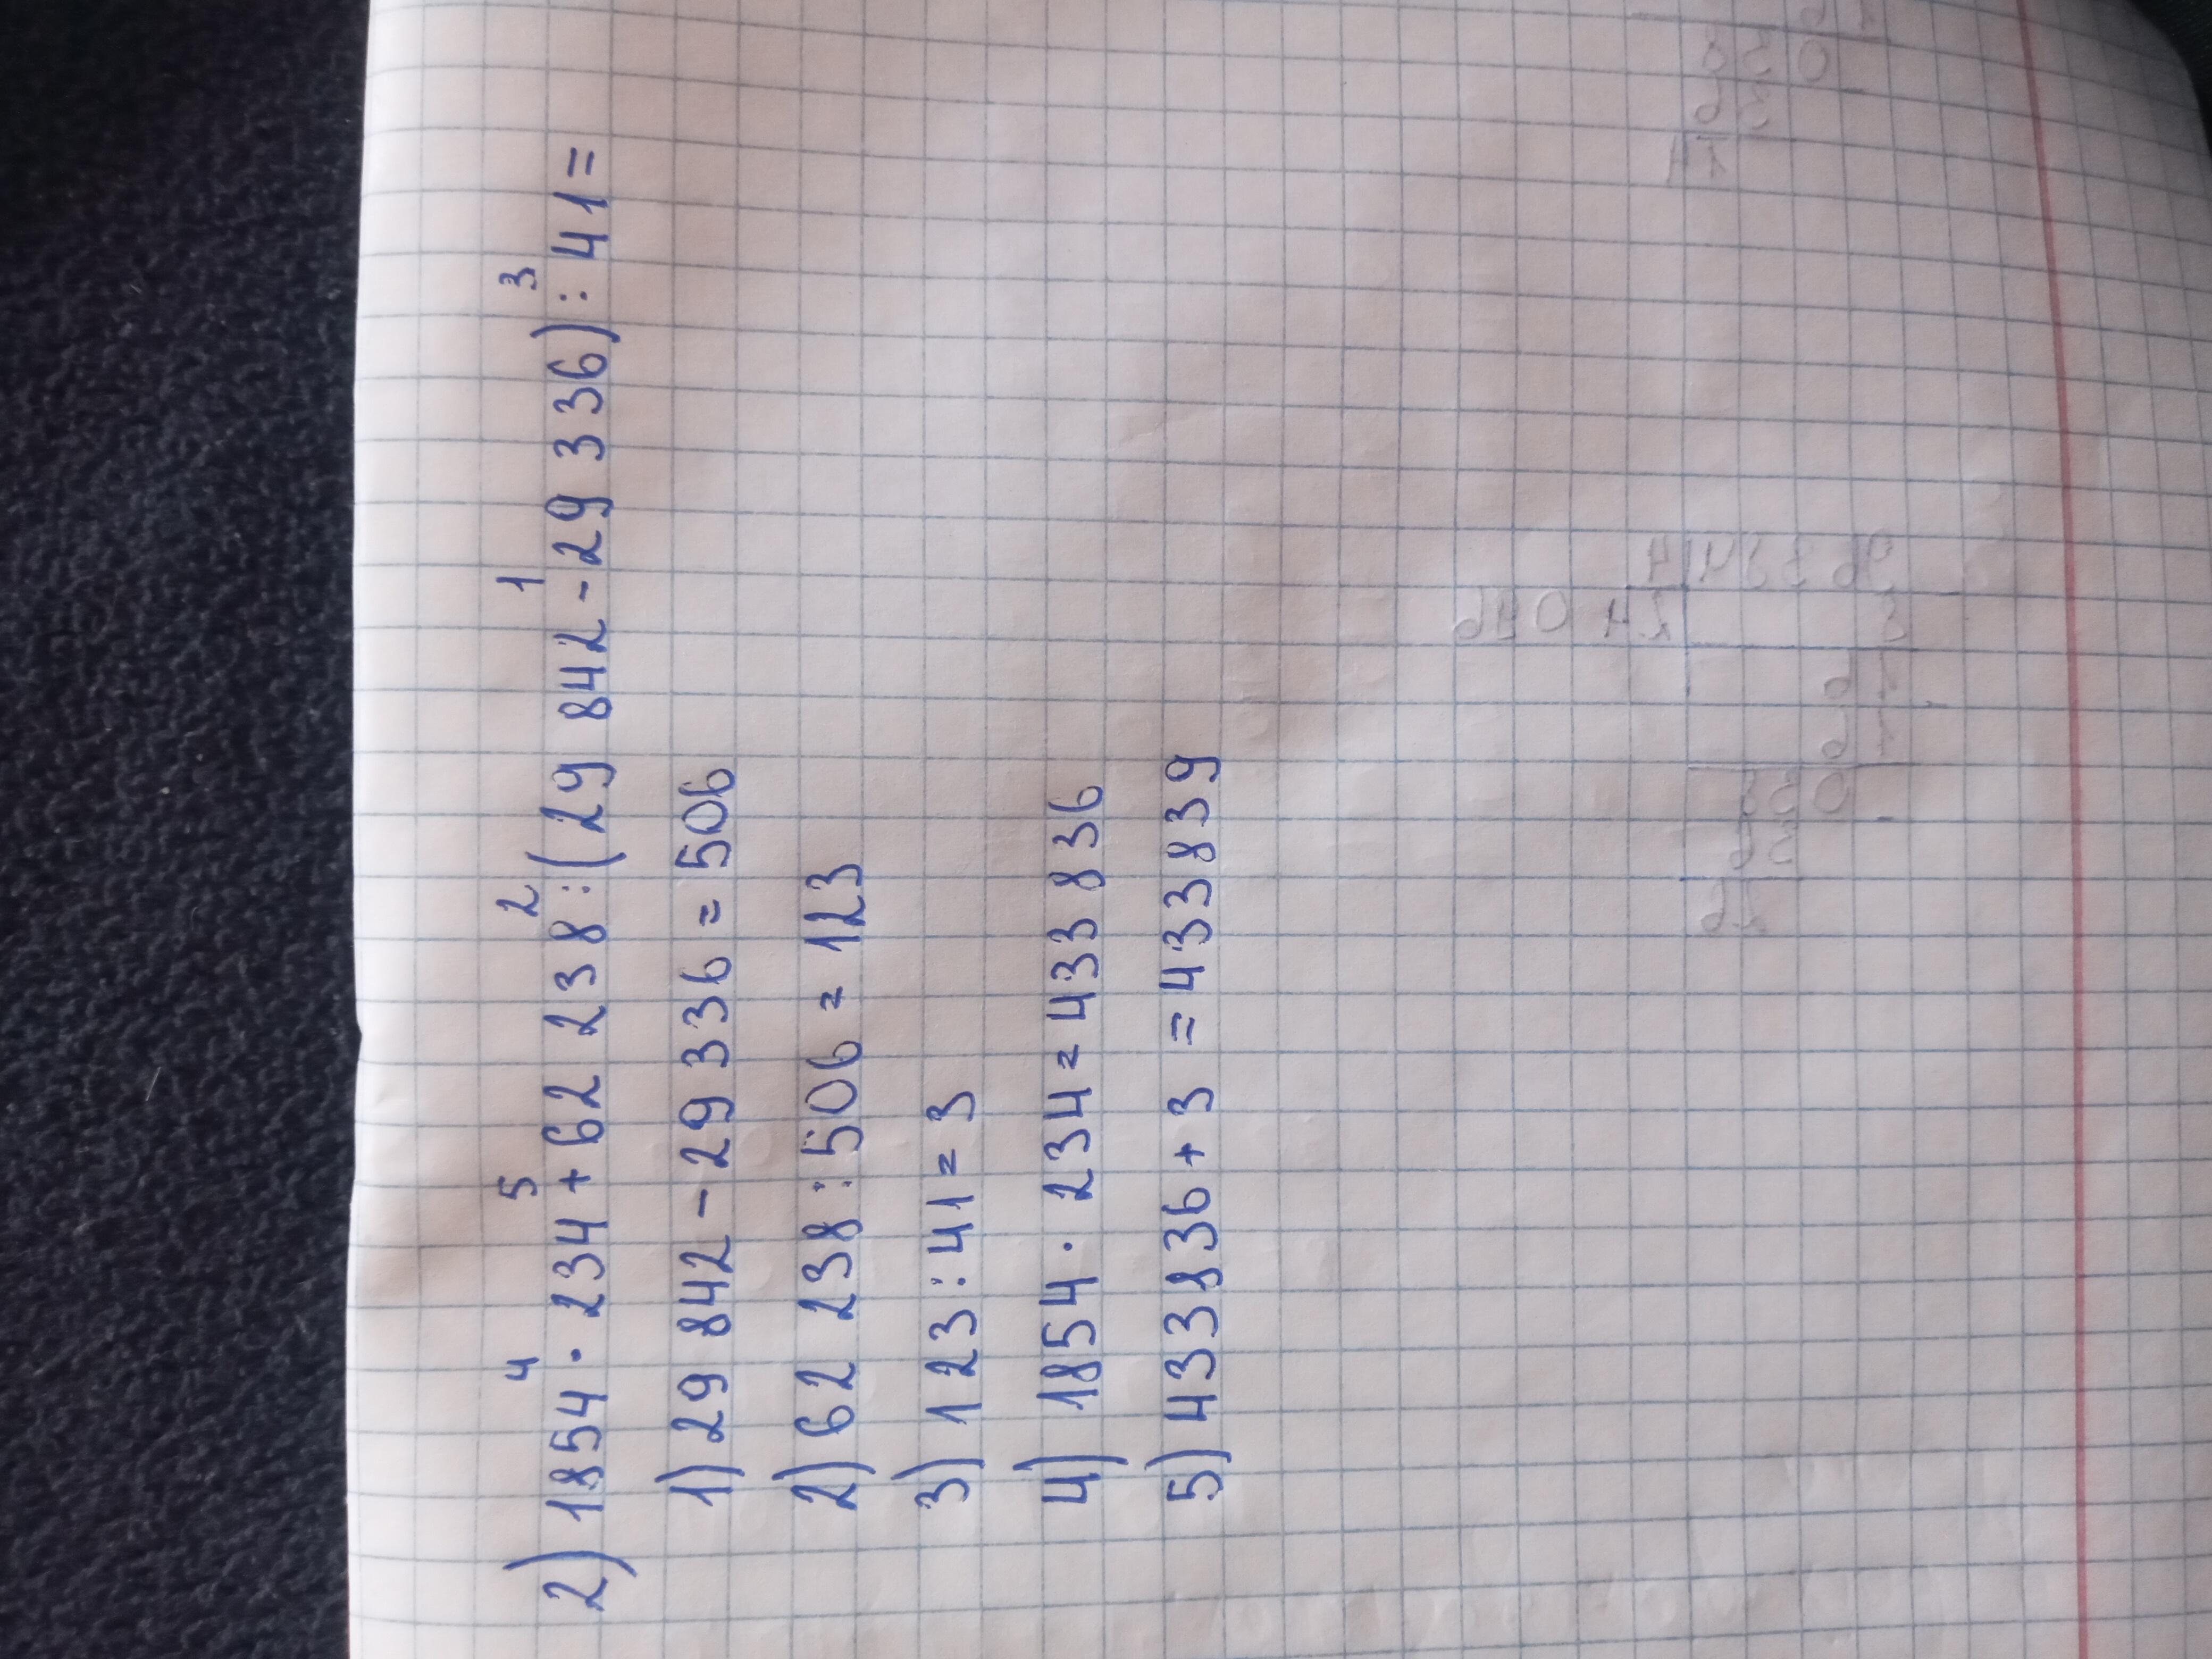 4 5 2 1 3
2) 1854 · 234 + 62 238 : (29 842 - 29 336) : 41 =
1) 29 842 - 29 336 = 506
2) 62 238 : 506 = 123
3) 123 : 41 = 3
4) 1854 · 234 = 433 836
5) 433836 + 3 = 433839